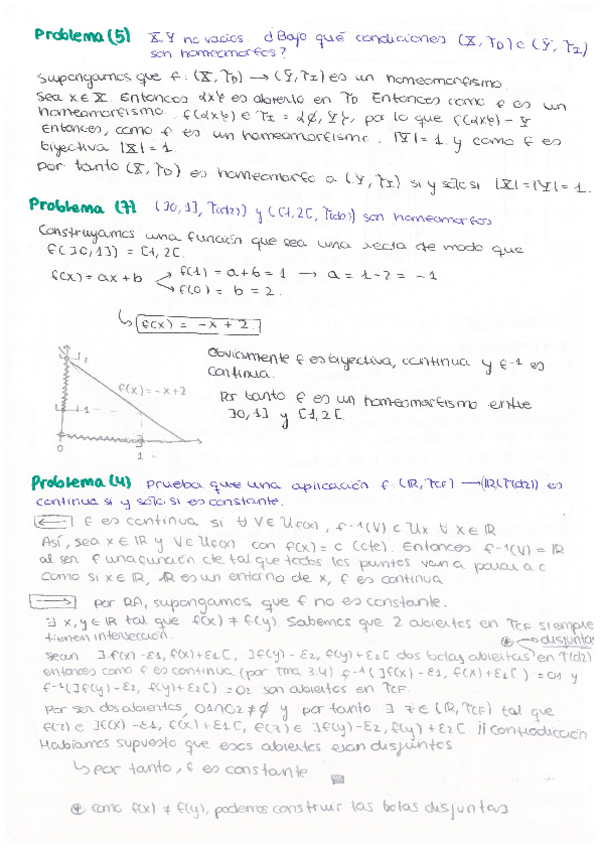 Problema (5) X, Y no vacíos. ¿Bajo qué condiciones (X, τD) e (Y, τI)
son homeomorfos?
Supongamos que f: (X, τD) → (Y, τI) es un homeomorfismo.
Sea x ∈ X. Entonces {x} es abierto en τD. Entonces como f es un
homeomorfismo, f({x}) ∈ τI = {ø, Y}, por lo que f({x}) = Y
Entonces, como f es un homeomorfismo, |Y| = 1. y como f es
biyectiva |X| = 1.
Por tanto (X, τD) es homeomorfo a (Y, τI) si y sólo si |X| = |Y| = 1.
Problema (7) (]0,1], τ(d2)) y ([1,2[, τ(d2)) son homeomorfos
Construyamos una función que sea una recta de modo que
f(]0,1]) = [1,2[.
f(x) = ax + b
f(1) = a+b = 1 → a = 1-2 = -1
f(0) = b = 2.
↳ f(x) = -x + 2
Obviamente f es biyectiva, continua y f-1 es
continua.
Por tanto f es un homeomorfismo entre
]0,1] y [1,2[.
2
f(x) = -x+2
1
0
1
Problema (4) Prueba que una aplicación f: (ℝ, τCF) → (ℝ, τ(d2)) es
continua si y sólo si es constante.
← f es continua si ∀ V ∈ Uf(x), f-1(V) ⊂ Ux ∀ x ∈ ℝ
Así, sea x ∈ ℝ y V ∈ Uf(x) con f(x) = c (cte). Entonces f-1(V) = ℝ
al ser f una función cte tal que todos los puntos van a parar a c
Como si x ∈ ℝ, ℝ es un entorno de x, f es continua
→ por RA, supongamos que f no es constante.
∃ x, y ∈ ℝ tal que f(x) ≠ f(y). Sabemos que 2 abiertos en τCF siempre
tienen intersección.
⊛ → disjuntas
Sean ]f(x)-ε1, f(x)+ε1[, ]f(y)-ε2, f(y)+ε2[ dos bolas abiertas en τ(d2)
entonces como f es continua (por tma 3.4) f-1(]f(x)-ε1, f(x)+ε1[) = O1 y
f-1(]f(y)-ε2, f(y)+ε2[) = O2 son abiertos en τCF.
Por ser dos abiertos, O1∩O2 ≠ ø y por tanto ∃ z ∈ (ℝ, τCF) tal que
f(z) ∈ ]f(x)-ε1, f(x)+ε1[, f(z) ∈ ]f(y)-ε2, f(y)+ε2[ ¡¡ Contradicción
Habíamos supuesto que esos abiertos eran disjuntos
↳ por tanto, f es constante
⊛ como f(x) ≠ f(y), podemos construir las bolas disjuntas